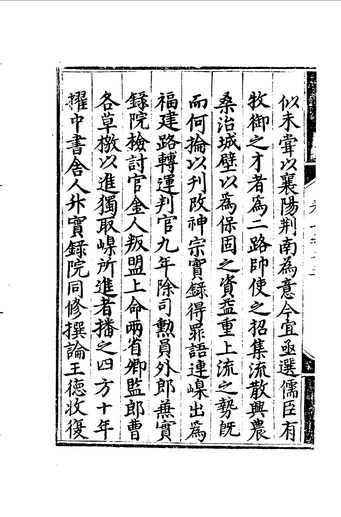 似未嘗以襄陽荆南為意今宜亟選儒臣有
牧御之才者為二路帥使之招集流散興農
桑治城壁以為保固之資益重上流之勢既
而何掄以刋改神宗實録得罪語連㬇出為
福建路轉運判官九年除司勲員外郎兼實
録院檢討官金人叛盟上命兩省卿監郎曹
各草檄以進獨取㬇所進者播之四方十年
擢中書舍人升實録院同修撰論王徳收復